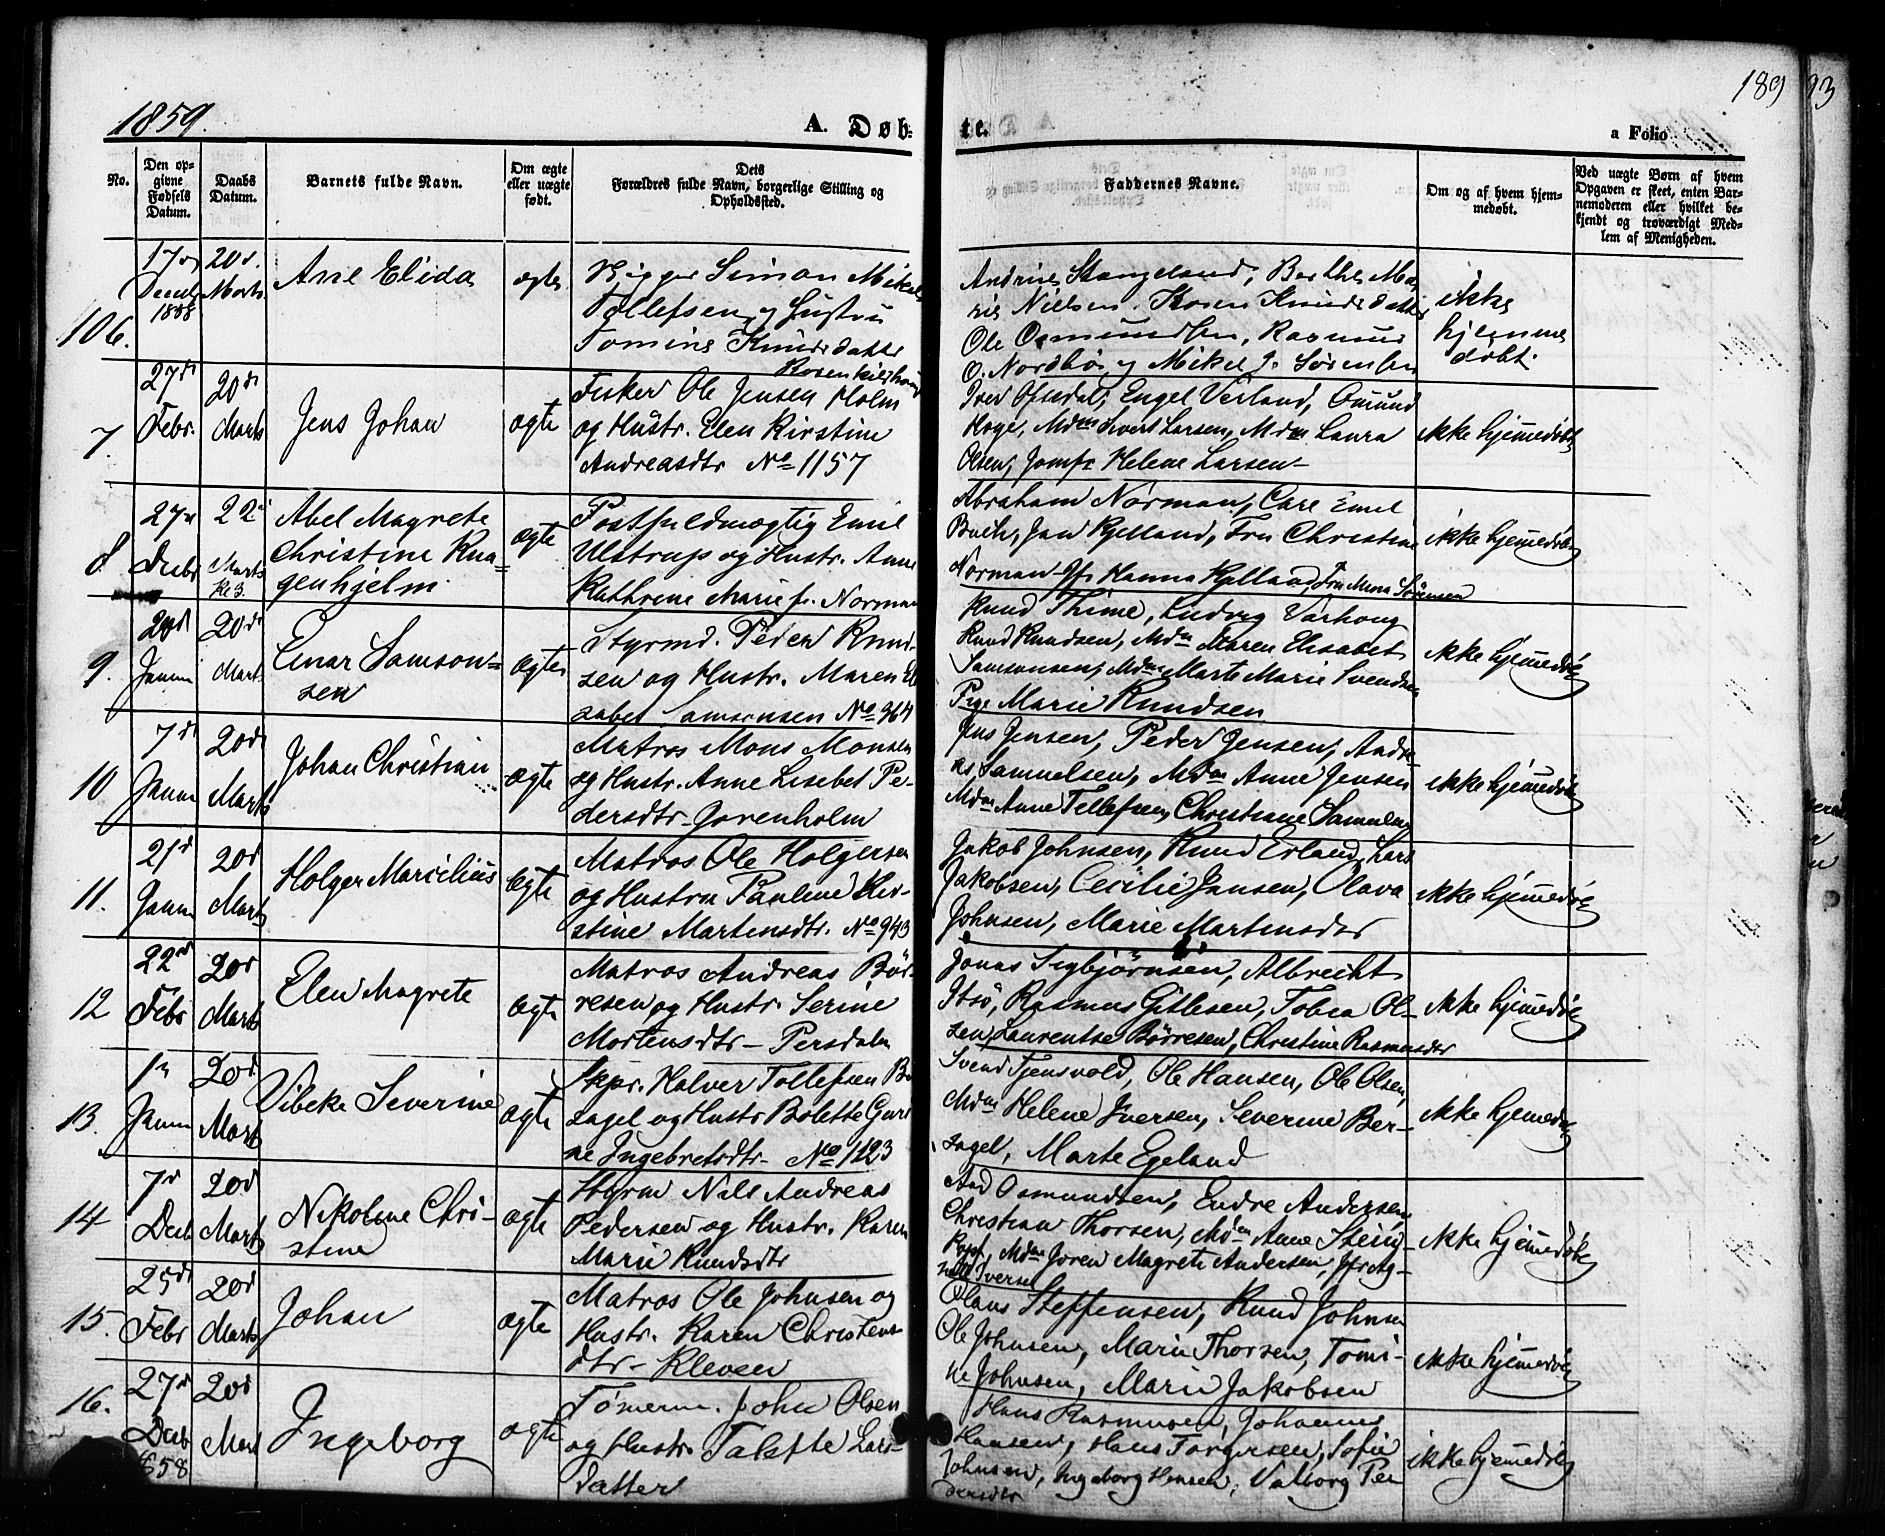 1859.
A. Døb-
te.
189
93
a Folio
No.
Den op-
givne
Fødsels
Datum.
Daabs
Datum.
Barnets fulde Navn.
Om ægte
eller uægte
født.
Dets
Forældres fulde Navn, borgerlige Stilling og
Opholdssted.
Faddernes Navne.
Om og af hvem hjem-
medøbt.
Ved uægte Børn af hvem
Opgaven er skeet, enten Bar-
nemoderen eller hvilket be-
kjendt og troværdigt Med-
lem af Menigheden.
106.
17
Decbr
1858
20d.
Marts
Ane Elida
ægte
Bygger Simon Mikal
Tollefsen og Hustru
Tomine Knudsdatter
Rosenkildehaug
Andrine Stangeland, Berthe Ma-
rie Nielsen, Karen Knudsdatter
Ole Osmundsen, Rasmus
O. Nordbø og Mikel J. Sørensen
ikke
hjemme
døbt.
7.
27d
Febr.
20d
Marts
Jens Johan
ægte
Fisker Ole Jensen Holm
og Hustr. Elen Kirstine
Andreasdtr No 1157
Iver Ofsedal, Engel Verland, Omund
Hoge, Mdm Sivert Larsen, Mdm Laura
Olsen, Jomfr Helene Larsen
ikke hjemedøbt
8
27d
Decbr
22d
Marts
Kl 3.
Abel Magrete
Christine Kna-
genhjelm
ægte
Postfuldmægtig Emil
Ulstrup og Hustr. Anne
Kathrine Marie f. Norman
Abraham Norman, Carl Emil
Buch, Jan Kjelland, Fru Christine
Norman Jfr Hanna Kjelland, Fru Mina Sömme
ikke hjemedøbt
9.
20d
Januar
20d
Mart
Einar Samson-
sen
ægte
Styrmd. Peder Knud-
sen og Hustr. Maren El-
sabet Samsonsen No 964
Knud Thime, Ludvig Varhoug
Knud Knudsen, Mdm Maren Elisabet
Samsonsen, Mdm Marte Marie Svendsen
Pige Marie Knudsen
ikke hjemedøbt
10
7d
Januar
20d
Marts
Johan Christian
ægte
Matros Mons Monsen
og Hustr. Anne Lisebet Pe-
dersdtr Jorenholm
Jens Jensen, Peder Jensen, Andre-
as Samuelsen, Mdm Anne Jensen
Mdm Anne Tollefsen, Christiane Samuelsen
ikke hjemedøbt
11.
21d
Januar
20d
Marts
Holger Marcilius
ægte
Matros Ole Holgersen
og Hustru Pauline Kir-
stine Martensdtr. No 943
Jakob Johnsen, Knud Erland, Lars
Jakobsen, Cecilie Jansen, Olava
Johnsen, Marie Martensdtr
ikke hjemedøbt
12
22d
Febr
20d
Marts
Elen Magrete
ægte
Matros Andreas Bör-
resen og Hustr. Serine
Mortensdtr - Persdalen
Jonas Sigbjörnsen, Albrecht
Itsö, Rasmus Gitlesen, Tobia Ol-
sen, Laurentse Börresen, Christine Rasmusdtr
ikke hjemedøbt
13.
1d
Januar
20d
Marts
Vibeke Severine
ægte
Skpr. Halver Tollefsen Ber-
sagel og Hustr Bolette Guri-
ne Ingebretsdtr - No 1123
Svend Tjensvold, Ole Hansen, Ole Olsen,
Mdm Helene Iversen, Severine Ber-
sagel, Marte Egeland
ikke hjemedøbt
14
7d
Decb
20d
Marts
Nikoline Chri-
stine
ægte
Styrm Nils Andreas
Pedersen og Hustr. Karen
Marie Knudsdtr
And Osmundsen, Endre Andersen
Christian Thorsen, Mdm Anne Stein-
kopf, Mdm Joren Magrete Andersen, Jfr Ag-
Iversen
ikke hjemedøbt
15.
25d
Febr
20d
Marts
Johan
ægte
Matros Ole Johnsen og
Hustr. Karen Christens-
dtr - Kleven
Olaus Steffensen, Knud Johnsen
Ole Johnsen, Marie Thorsen, Tomi-
ne Johnsen, Marie Jakobsen
ikke hjemedøbt
16.
27d
Decb
1858
20d
Mart
Ingeborg
ægte
Tømerm. John Olsen
og Hustr. Talette Lars-
datter
Hans Rasmusen, Johannes
Hansen, Hans Torgersen, Sofie
Johnsen, Ingeborg Hansen, Valborg Pe-
dersdtr
ikke hjemedøbt